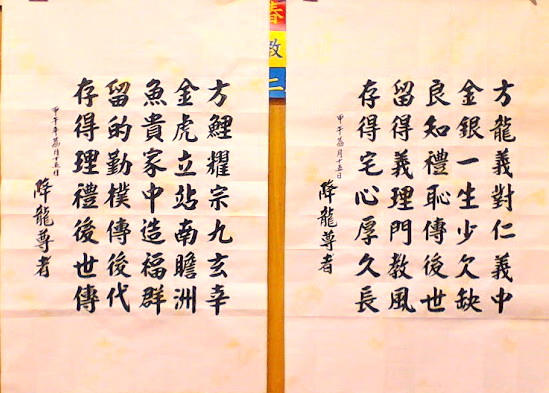 方龍義對仁義中
金銀一生少欠缺
良知禮恥傳後世
留得義理門教風
存得宅心厚久長
甲午荔月十五日
降龍尊者
春教二
方鯉耀宗九玄幸
金虎立站南瞻洲
魚貴家中造福群
留的勤樸傳後代
存得理禮後世傳
甲午年荔月十五日
降龍尊者